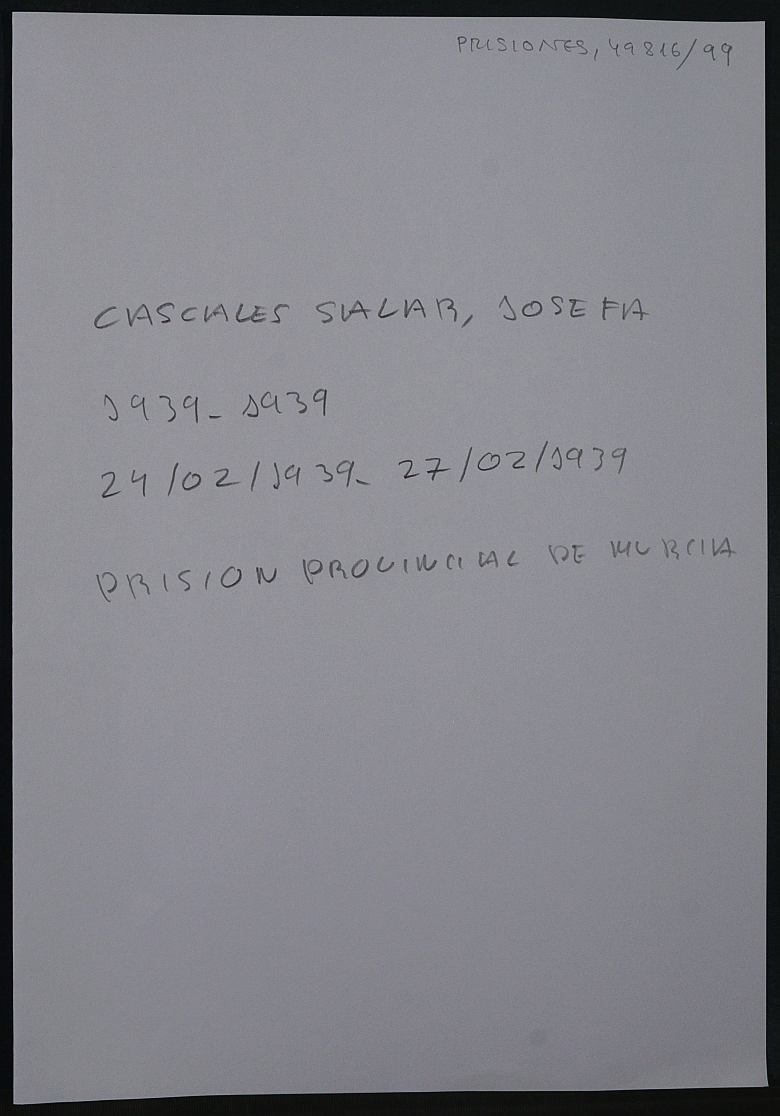 PRISIONES, 49816/99
CASCALES SALAR, JOSEFA
1939-1939
24/02/1939- 27/02/1939
PRISION PROVINCIAL DE MURCIA